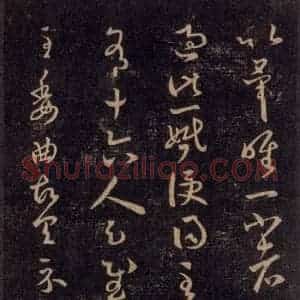 以畢唯一小者
過此一婚便得至
有十六人足慰
至委曲故具示
Shufaziliao.com